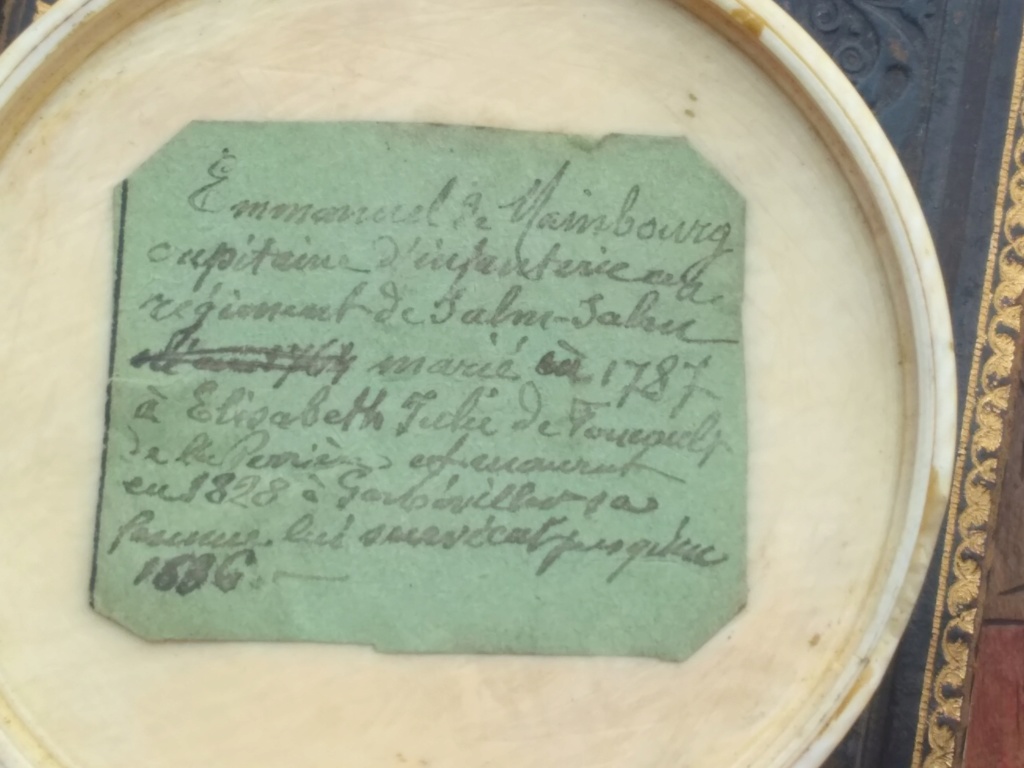 Emmanuel de Maimbourg
capitaine d'infanterie au
régiment de Salm-Salm
marié en 1787
à Elisabeth Julie de Fouquet
de la Perrière et mourut
en 1828 à Gerbéviller sa
femme lui survécut jusqu'en
1836.